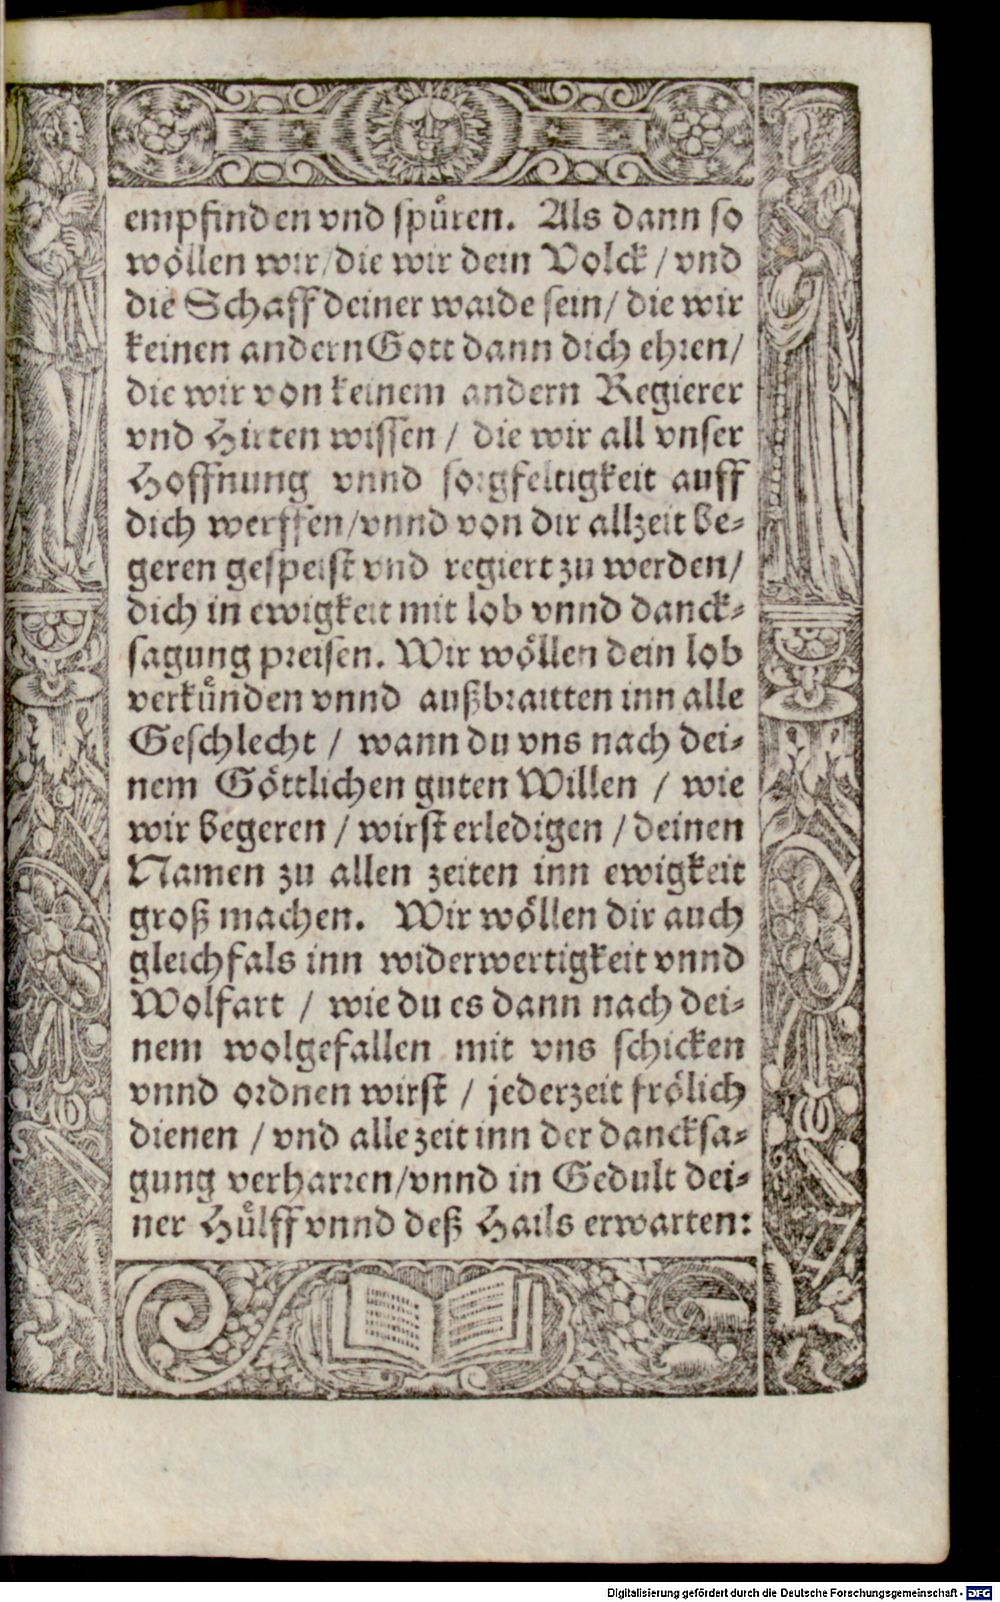 empfinden vnd spůren. Als dann so
wöllen wir/die wir dein Volck / vnd
die Schaff deiner waide sein/ die wir
keinen andern Gott dann dich ehren/
die wir von keinem andern Regierer
vnd Hirten wissen / die wir all vnser
Hoffnung vnnd sorgfeltigkeit auff
dich werffen/vnnd von dir allzeit be-
geren gespeist vnd regiert zu werden/
dich in ewigkeit mit lob vnnd danck-
sagung preisen. Wir wöllen dein lob
verkünden vnnd außbraitten inn alle
Geschlecht / wann du vns nach dei-
nem Göttlichen guten Willen / wie
wir begeren / wirst erledigen / deinen
Namen zu allen zeiten inn ewigkeit
groß machen. Wir wöllen dir auch
gleichfals inn widerwertigkeit vnnd
Wolfart / wie du es dann nach dei-
nem wolgefallen mit vns schicken
vnnd ordnen wirst / jederzeit frölich
dienen / vnd alle zeit inn der dancksa-
gung verharren/vnnd in Gedult dei-
ner Hůlff vnnd deß Hails erwarten:
Digitalisierung gefördert durch die Deutsche Forschungsgemeinschaft - DFG